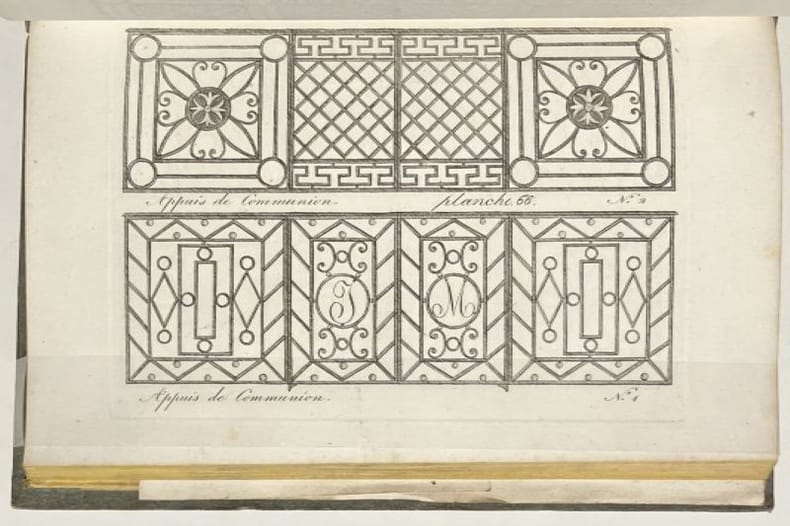 Appuis de Communion. planche, 66. N.º 2
J M
Appuis de Communion. N.º 1